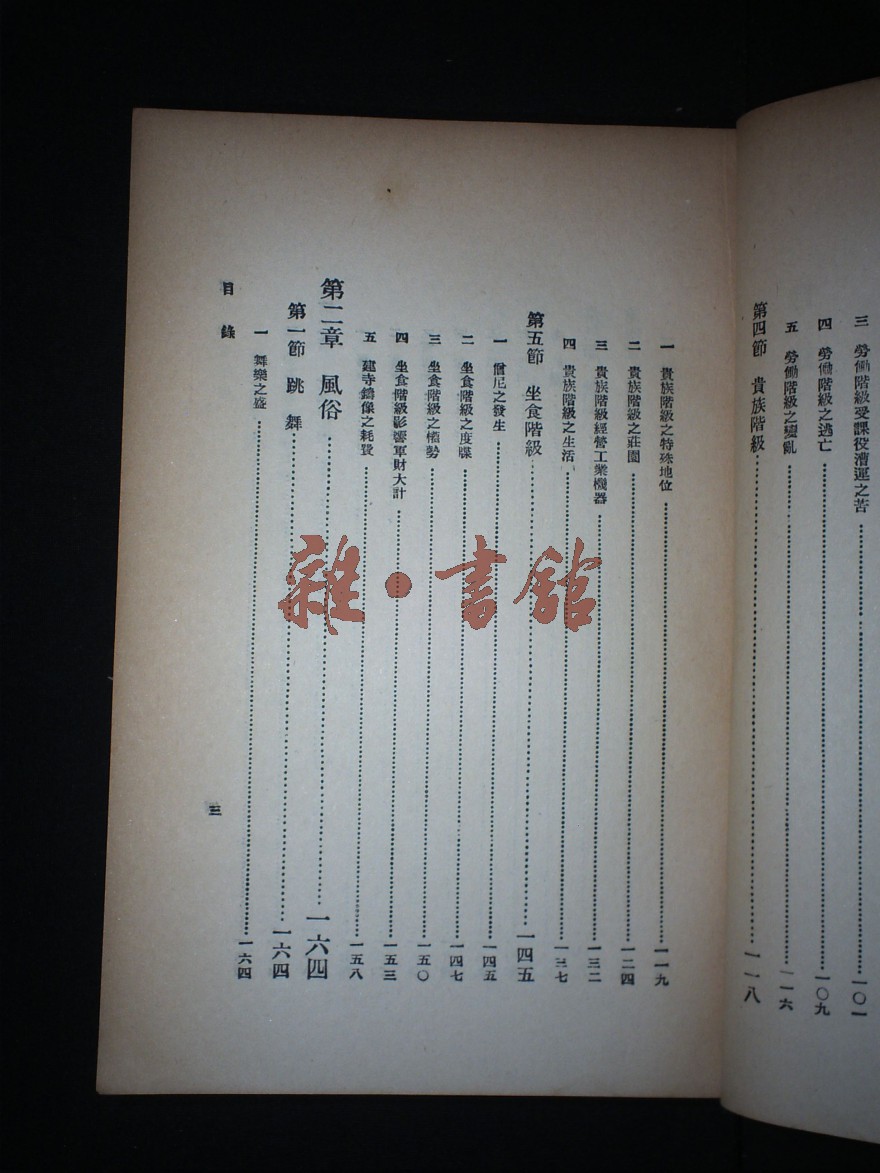 三 勞働階級受課役漕運之苦……一〇一
四 勞働階級之逃亡……一〇九
五 勞働階級之變亂……一一六
第四節 貴族階級……一一八
一 貴族階級之特殊地位……一一九
二 貴族階級之莊園……一二四
三 貴族階級經營工業機器……一三二
四 貴族階級之生活……一三七
第五節 坐食階級……一四五
一 僧尼之發生……一四五
二 坐食階級之度牒……一四七
三 坐食階級之權勢……一五〇
四 坐食階級影響軍財大計……一五三
五 建寺鑄像之耗費……一五八
第二章 風俗……一六四
第一節 跳舞……一六四
一 舞樂之盛……一六四
目錄
三
雜·書館